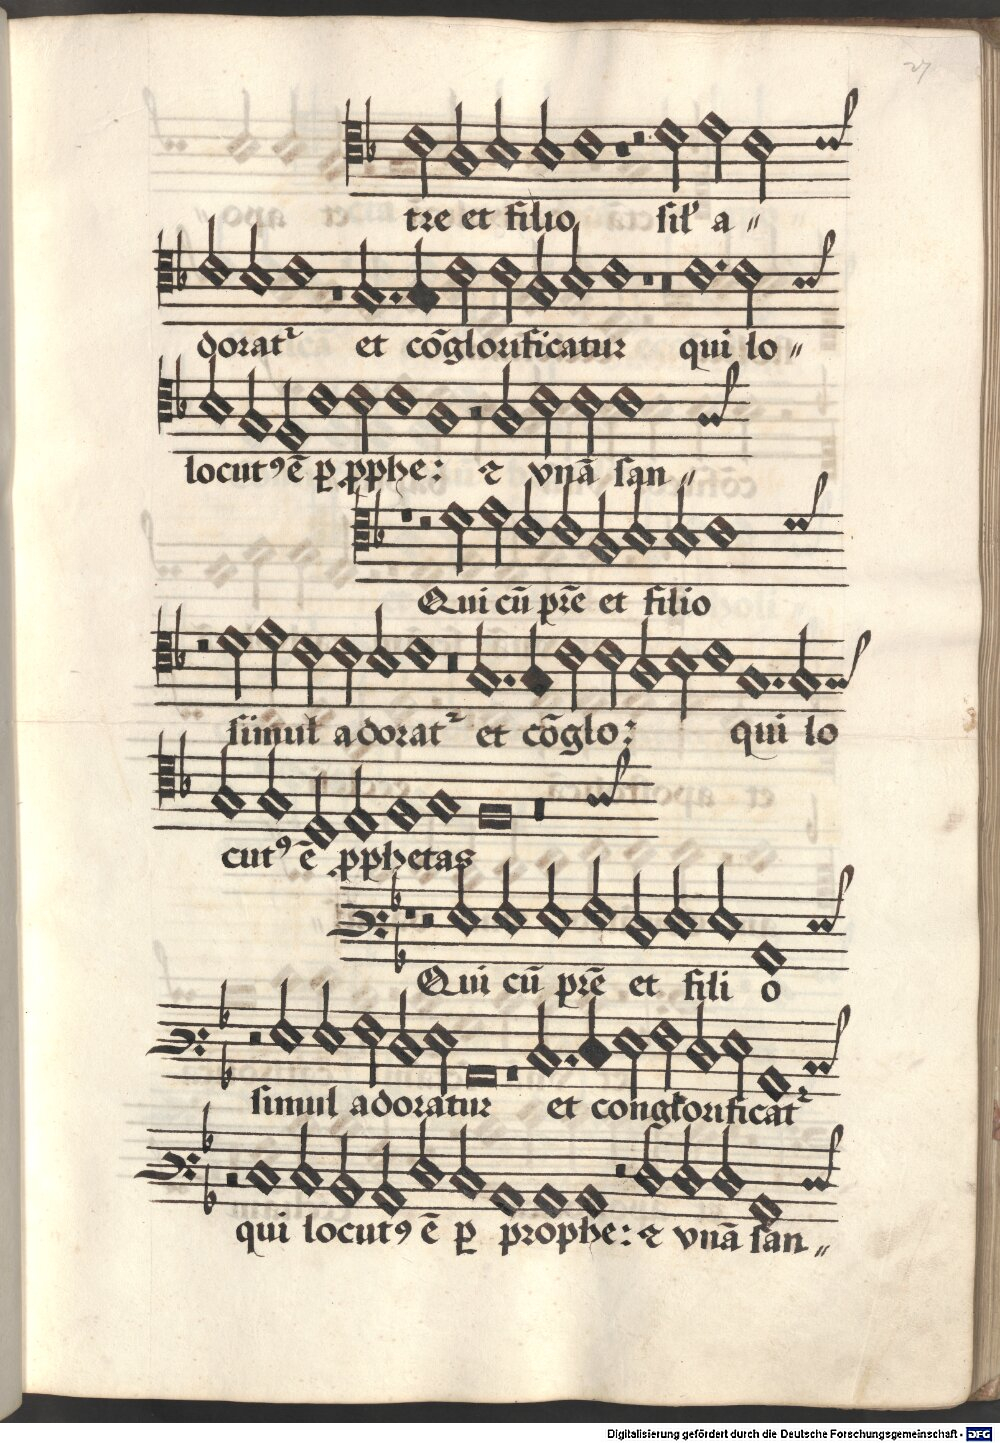 27
tre et filio sil' a〃
dorat² et cōglorificatur qui lo〃
locut⁹ ē ꝑ ꝓphe: ⁊ vnā san〃
Qui cū pr̄e et filio
simul adorat² et cōglo: qui lo
cut⁹ ē ꝓphetas
Qui cū pr̄e et fili o
simul adoratur et conglorificat²
qui locut⁹ ē ꝑ prophe: ⁊ vnā san〃
Digitalisierung gefördert durch die Deutsche Forschungsgemeinschaft - DFG